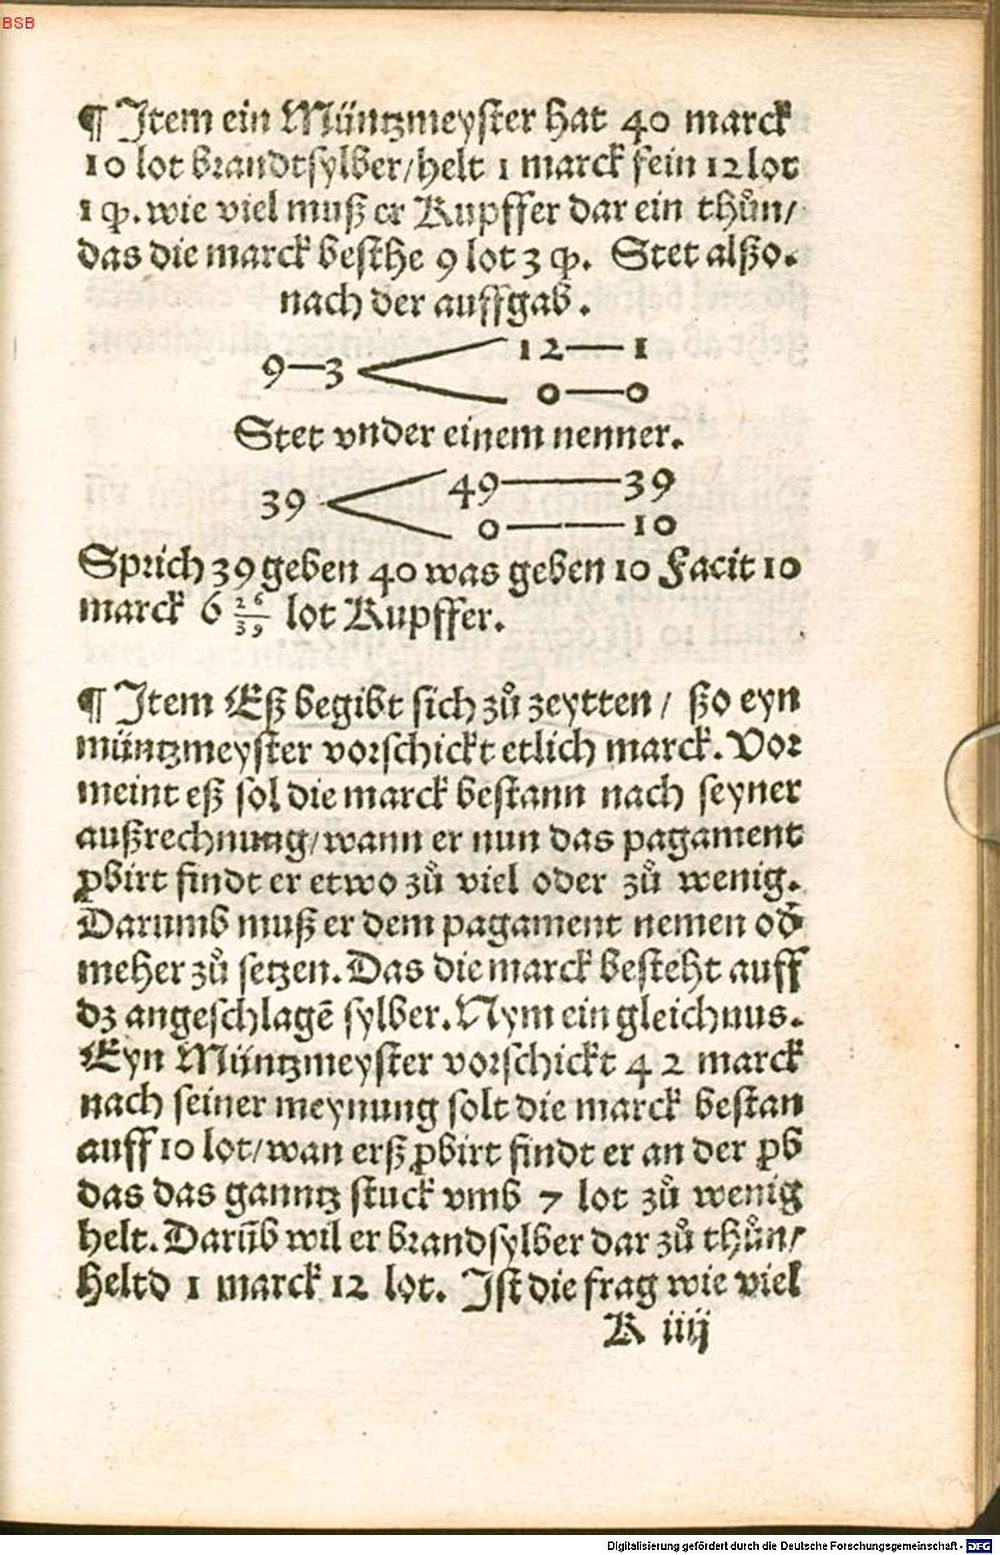 BSB
¶ Item ein Müntzmeyster hat 40 marck
10 lot brandtsylber/helt 1 marck fein 12 lot
1 qͥ. wie viel muß er Kupffer dar ein thůn/
das die marck besthe 9 lot 3 qͥ. Stet alßo.
nach der auffgab.
12—1
9—3
0—0
Stet vnder einem nenner.
49—39
39
0—10
Sprich 39 geben 40 was geben 10 Facit 10
marck 6 26/39 lot Kupffer.
¶ Item Eß begibt sich zů zeytten / ßo eyn
müntzmeyster vorschickt etlich marck. Vor
meint eß sol die marck bestann nach seyner
außrechnung/wann er nun das pagament
ꝓbirt findt er etwo zů viel oder zů wenig.
Darumb muß er dem pagament nemen od̕
meher zů setzen. Das die marck besteht auff
dz angeschlagē sylber. Nym ein gleichnus.
Eyn Müntzmeyster vorschickt 42 marck
nach seiner meynung solt die marck bestan
auff 10 lot/wan erß ꝓbirt findt er an der ꝓb
das das ganntz stuck vmb 7 lot zů wenig
helt. Darūb wil er brandsylber dar zů thůn/
heltd 1 marck 12 lot. Ist die frag wie viel
K iiij
Digitalisierung gefördert durch die Deutsche Forschungsgemeinschaft - DFG